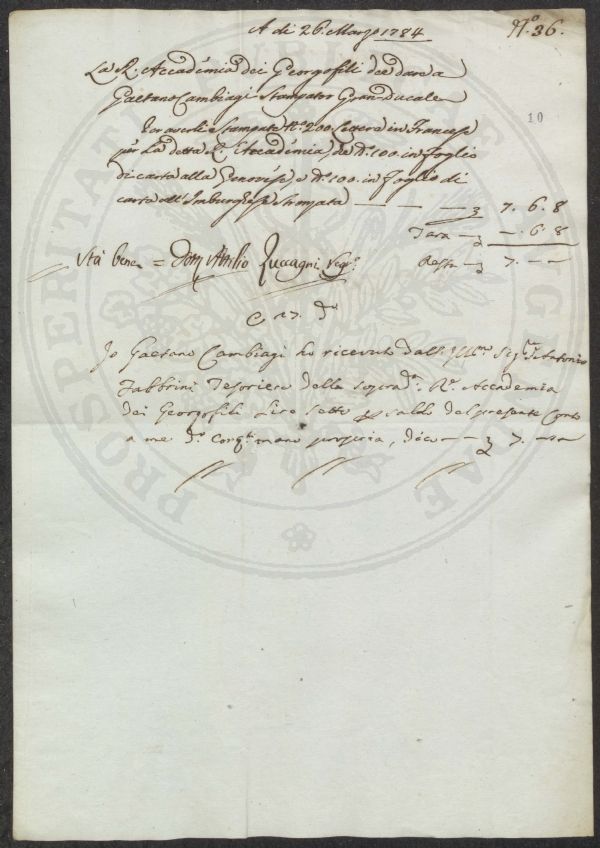 A di 26. Marzo 1784
N.° 36.
10
La R. Accadémia dei Georgofili deve dare a
Gaetano Cambiagi Stampator Granducale
Per averli Stampate N.° 200. Lettere in Francese
per La detta R. Accadémia, De N.° 100. in foglio
di carta alla Genovése, e N.° 100. in foglio di
carta all'Imburghese stampata — — — 7. 6. 8
Tara — —. 6. 8
Resta — 7. — —
Stà bene = Dom Attilio Zuccagni Seg.°
E 27. D.°
Io Gaetano Cambiagi ho ricevuto dall: Ill:mo Sig.re Antonio
Fabbrini Tesoriere della soprad.a R.e Accademia
dei Georgofili Lire Sette per saldo del presente Conto
a me d.° cont.i mano propria, dico — 7. — —
PROSPERITATI PUBLICAE AUGENDAE